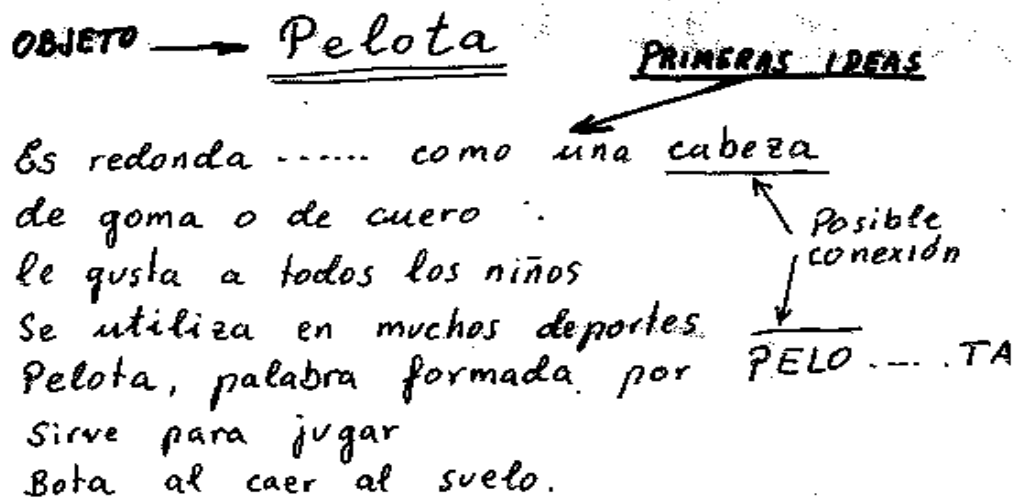 OBJETO Pelota
PRIMERAS IDEAS
Es redonda ...... como una cabeza
de goma o de cuero .
le gusta a todos los niños
Posible
conexión
Se utiliza en muchos deportes
Pelota, palabra formada por PELO.....TA
Sirve para jugar
Bota al caer al suelo.